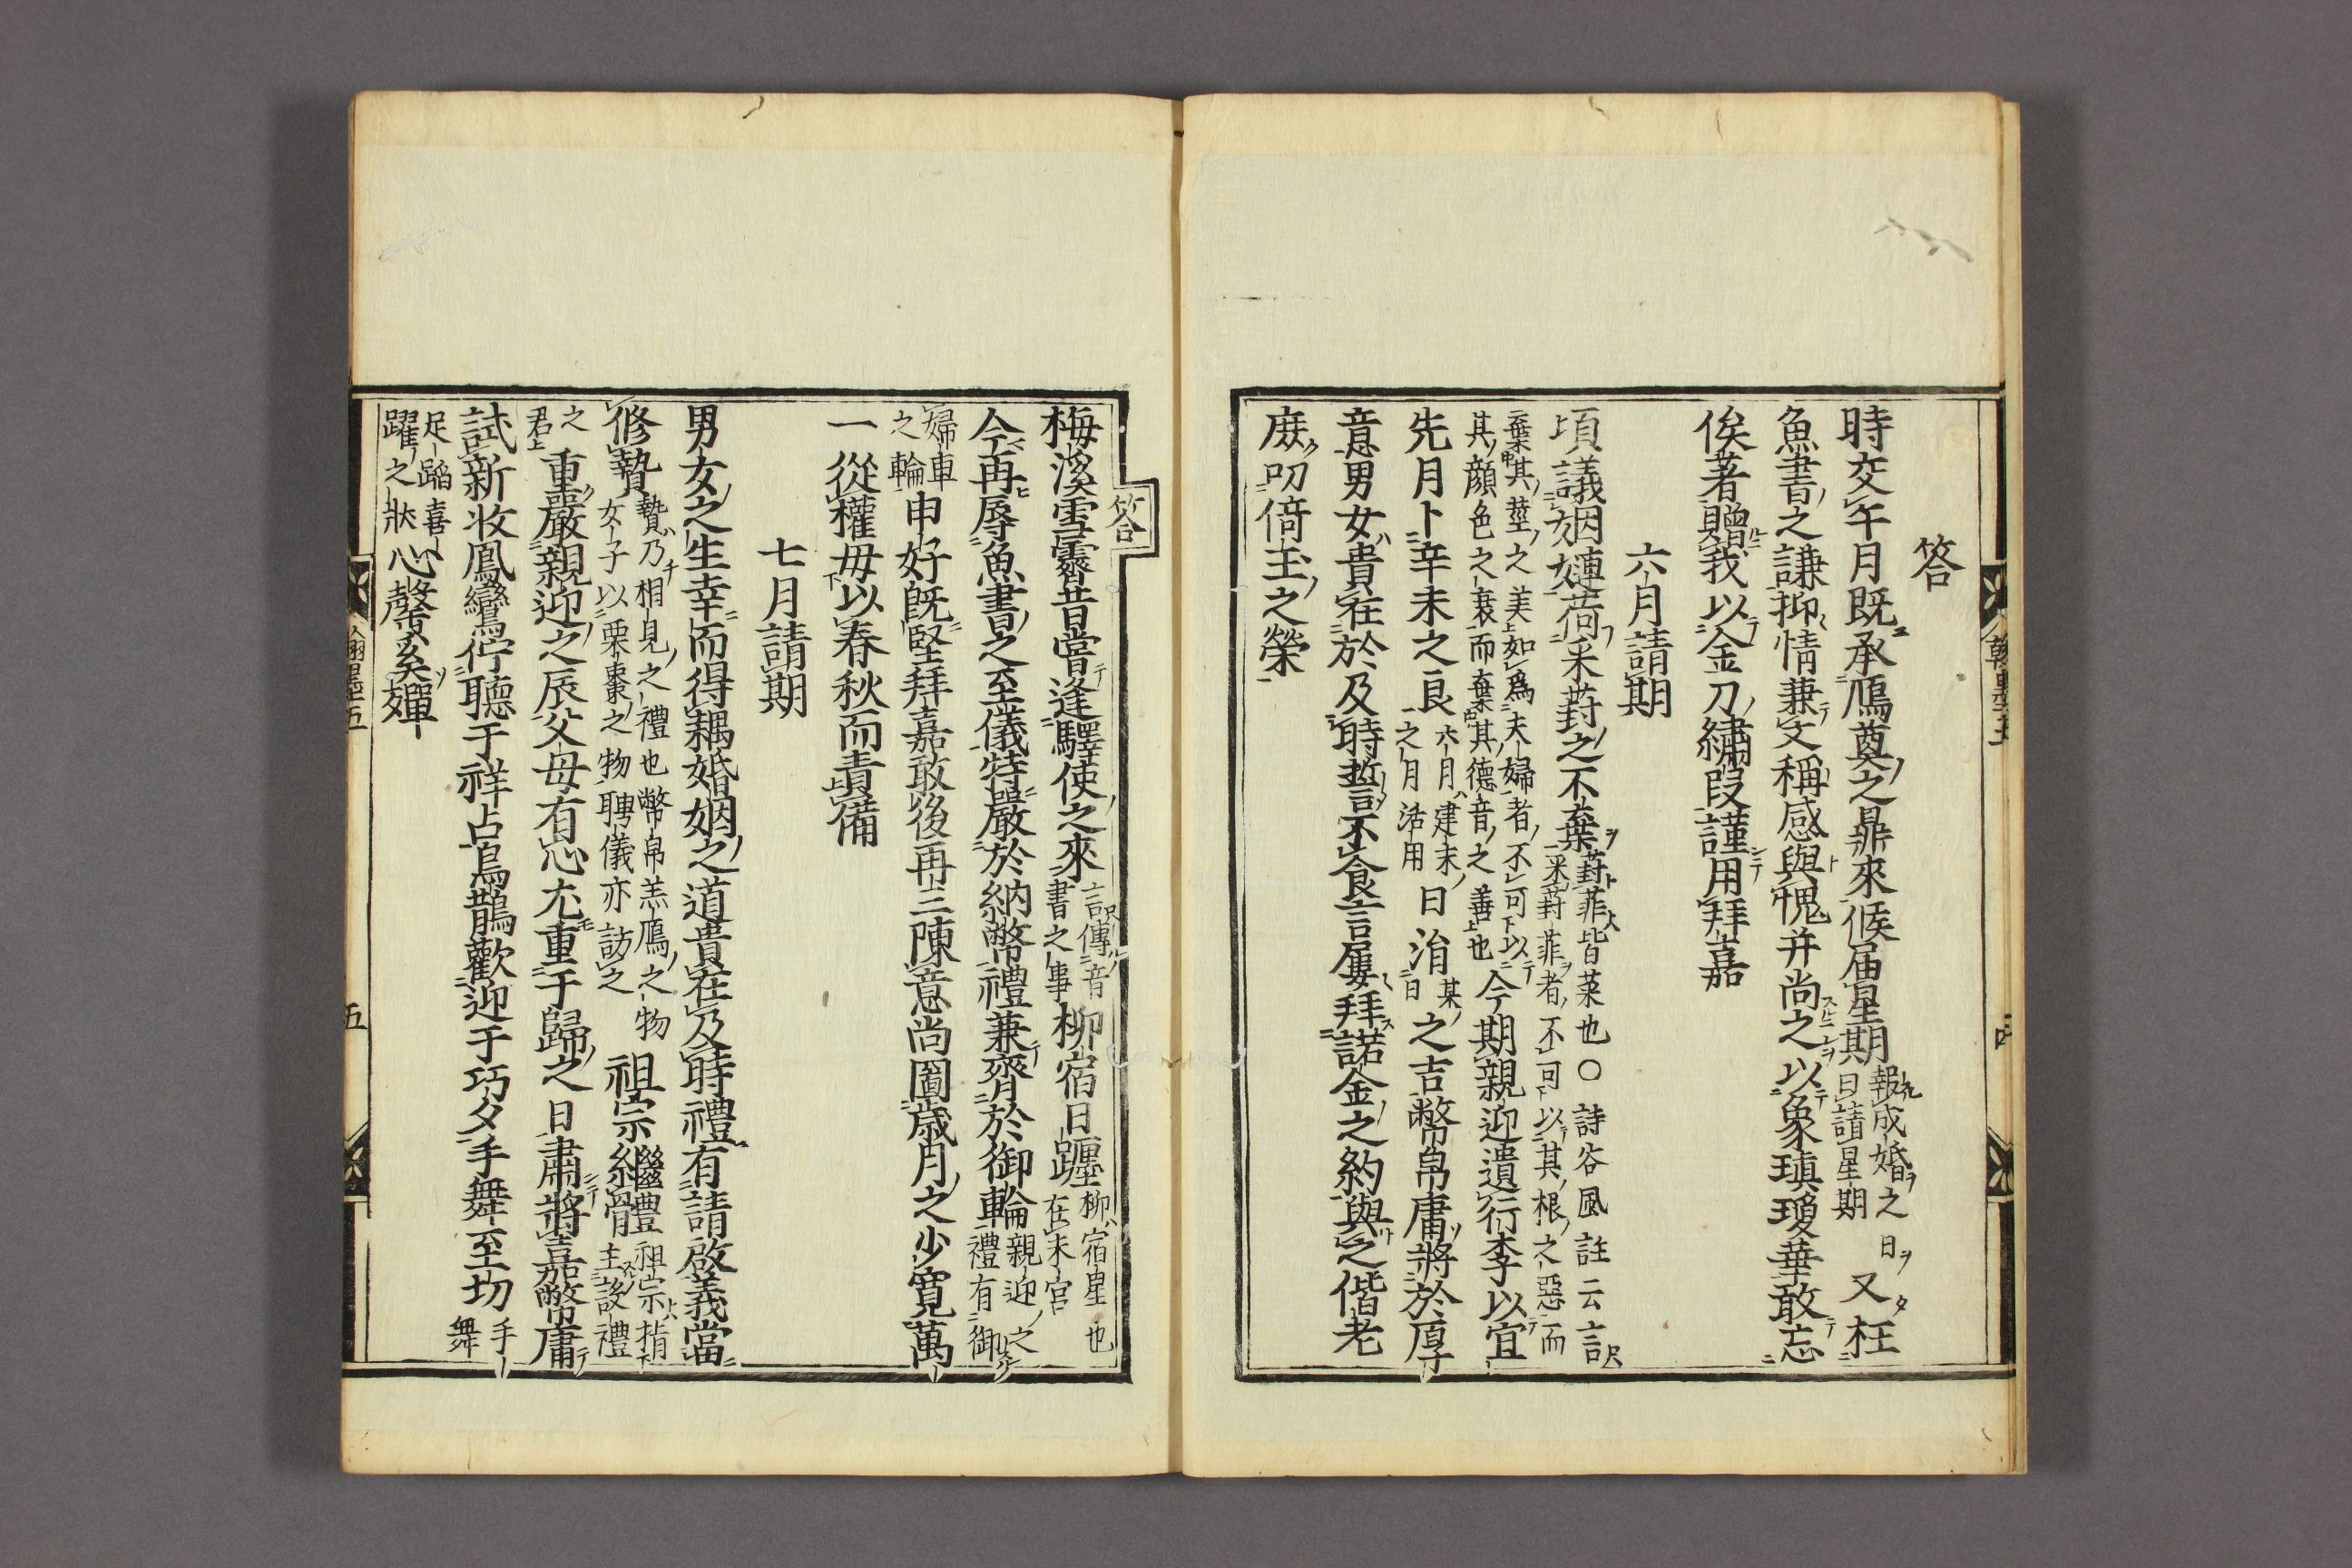 答
時交午月既承鴈奠之鼎來候届星期報成婚之日曰請星期又枉
魚書之謙抑情兼文稱感與愧并尚之以象瑱瓊華敢忘
俟著贈我以金刀繡段謹用拜嘉
六月請期
頃議姻婕荷采葑之不棄葑菲皆菜也○詩谷風註云言采葑菲者不可以其根之惡而
棄其莖之美如為夫婦者不可以其顔色之衰而棄其德音之善也今期親迎遺行李以宜
先月卜辛未之良六月建未之月活用日涓某日之吉幣帛庸將於厚
意男女貴在於及時誓不食言屢拜諾金之約與之偕老
庻叨倚玉之榮
答
梅溪雪霽昔嘗逢驛使之來言傳音書之事柳宿日躔柳宿星也在未宮
今再辱魚書之至儀特嚴於納幣禮兼齊於御輪親迎之禮有御
婦車之輪申好既堅拜嘉敢後再三陳意尚圖歳月之少寬萬
一從權毋以春秋而責備
七月請期
男女之生幸而得耦婚姻之道貴在及時禮有請啟義當
修贄贄乃相見之禮也幣帛羔鴈之物女子以栗棗之物聘儀亦訪之祖宗繼體祖宗指主設禮
之君上重嚴親迎之辰父母有心尤重于歸之日肅將嘉幣庸
試新妝鳳鸞佇聽于祥占烏鵲歡迎于巧夕手舞至切手舞
足蹈喜躍之狀心馨奚殫
翰墨五
五